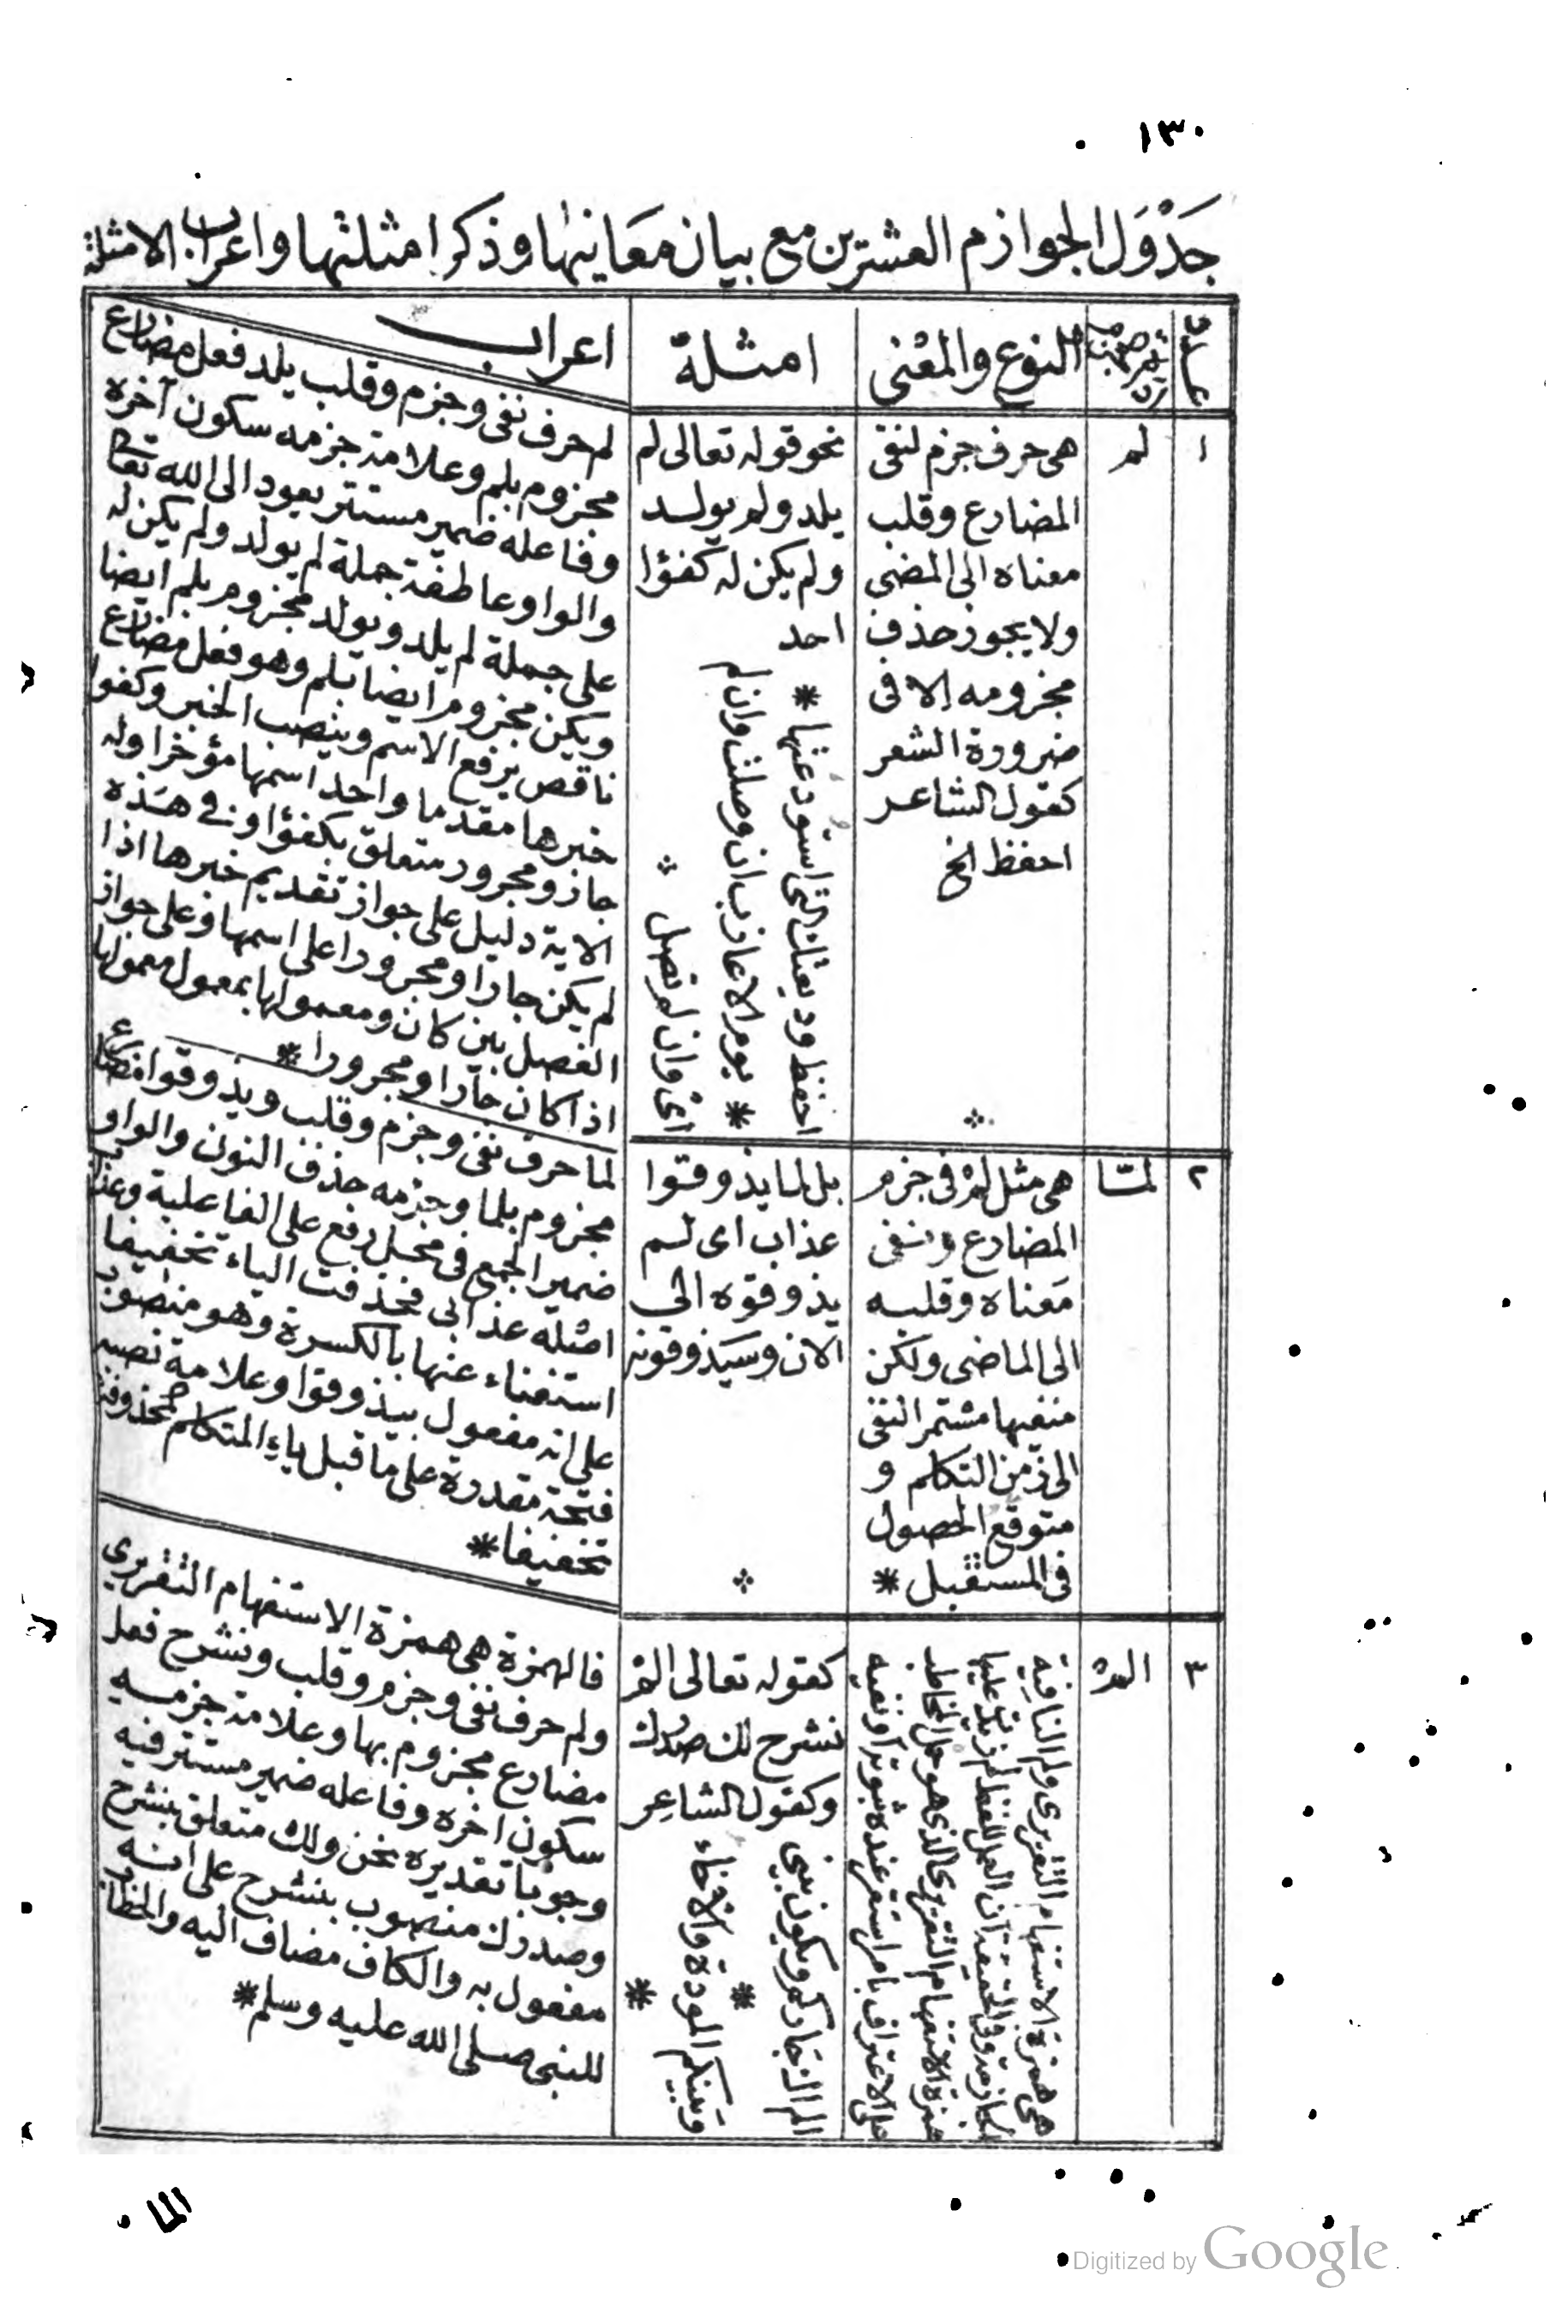 ١٣٠
جَدْوَل الجوازم العشرين مع بيان معَانيها وذكر امثلتها واعراب الامثلة
عدد
النوع والمعْنى
امثلة
اعراب
١
لم
هى حرف جزم لنفى
المضارع وقلب
معناه الى المضى
ولا يجوز حذف
مجزومه الا فى
ضرورة الشعر
كقول الشاعر
احفظ الخ
نحو قوله تعالى لم
يلد ولم يولد
ولم يكن له كفؤا
احد
احفظ وديعتك التى استودعتها *
* يوم الاعازب ان وصلت وان لم
اىْ وان لم تصل
لم حرف نفى وجزم وقلب يلد فعل مضارع
مجزوم بلم وعلامة جزمه سكون آخره
وفاعله ضمير مستتر يعود الى الله تعا
والواو عاطفة جملة لم يولد ولم يكن له
على جملة لم يلد ويولد مجزوم بلم ايضا
ويكن مجزوم ايضا بلم وهو فعل مضارع
ناقص يرفع الاسم وينصب الخبر وكفوا
خبرها مقدما واحد اسمها مؤخرا وله
جار ومجرور متعلق بكفؤا وفى هذه
الاية دليل على جواز تقديم خبرها اذا
لم يكن جارا ومجرورا على اسمها وعلى جواز
الفصل بين كان ومعمولها بمعمول معمولها
اذا كان جارا ومجرورا *
٢
لمّا
هى مثل لمْ فى جزم
المضارع ونفى
مَعناه وقلبه
الى الماضى ولكن
منفيها مستمر النفى
الى زمن التكلم و
متوقع الحصول
فى المستقبل *
بل لما يذوقوا
عذاب اى لم
يذوقوه الى
الآن وسَيَذوقونه
لما حرف نفى وجزم وقلب ويذوقوا مضارع
مجزوم بلما وجزمه حذف النون والواو
ضمير الجمع فى محل رفع على الفاعلية وعذاب
اصله عذابى فحذفت الياء تخفيفا
استغناء عنها بالكسرة وهو منصوب
على انه مفعول بيذوقوا وعلامة نصبه
فتحة مقدرة على ما قبل ياء المتكلم المحذوفة
تخفيفا *
٣
المْ
هى همزة الاستفهام التقريرى ولم النافية
همزة الاستفهام التقريرى الذى هو حمل المخاطب
على الاعتراف بامر استقر عنده ثبوته او نفيه
كقوله تعالى المْ
نشرح لك صدرك
وكقول الشاعِر
الم اك جاركم ويكون بينى
*
وبَينكم المودة والاخاء
*
فالهمزة هى همزة الاستفهام التقريرى
ولم حرف نفى وجزم وقلب ونشرح فعل
مضارع مجزوم بها وعلامة جزمه
سكون اخره وفاعله ضمير مستتر فيه
وجوبا تقديره نحن ولك متعلق بنشرح
وصدرك منصوب بنشرح على انه
مفعول به والكاف مضاف اليه والخطاب
للنبى صلى الله عليه وسلم *
الما
Digitized by Google